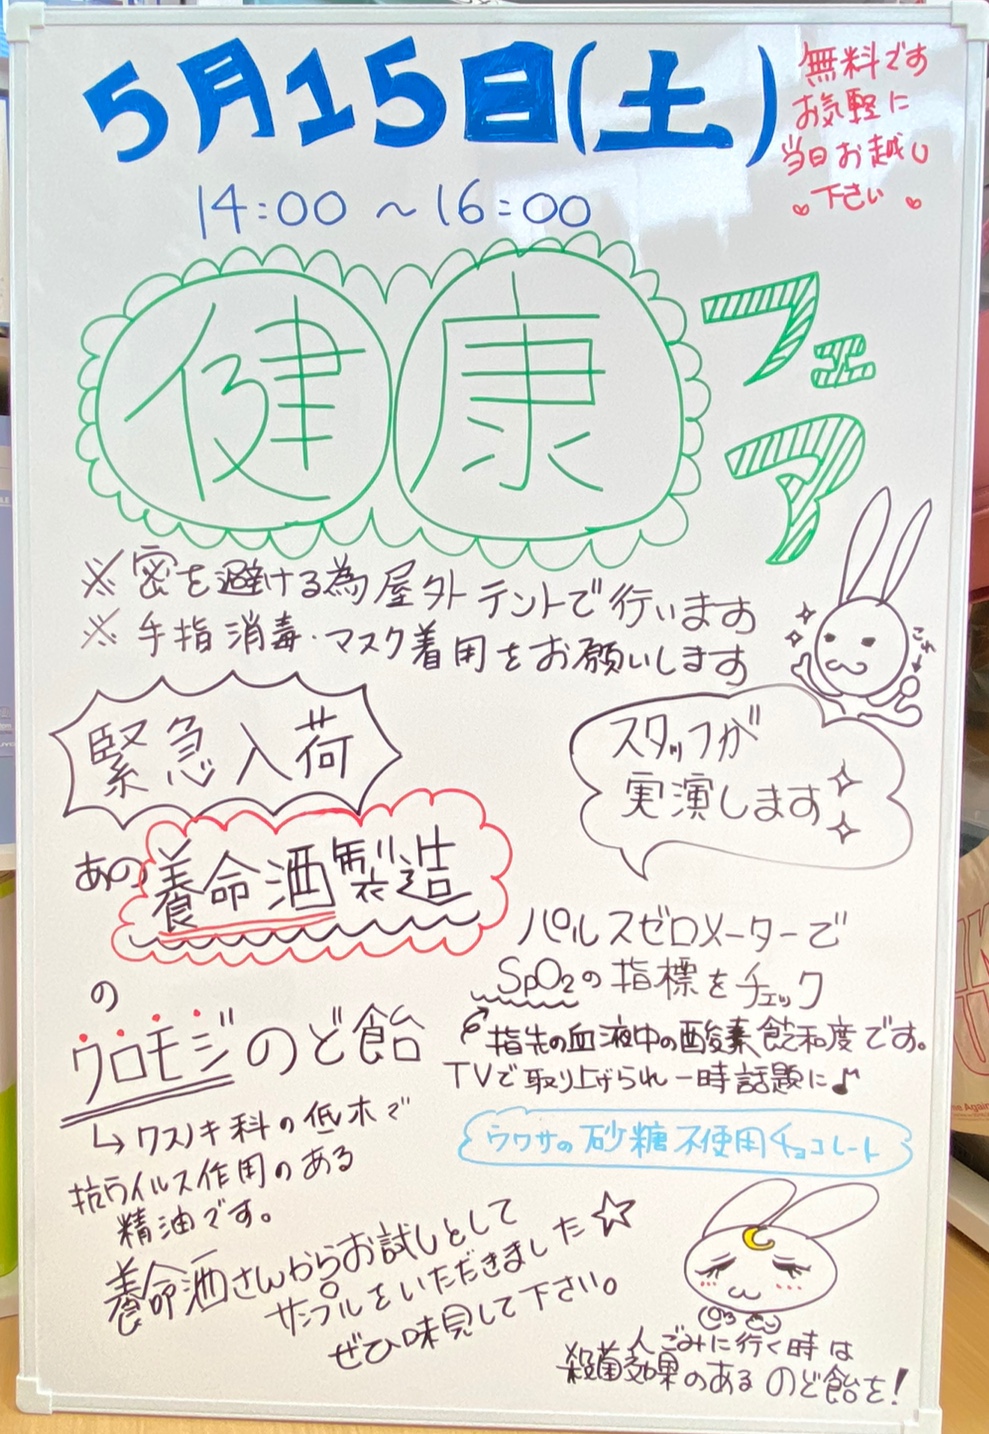 5月15日(土)
14:00～16:00
無料です
お気軽に
当日お越し
下さい
健康
フェア
※密を避ける為屋外テントで行います
※手指消毒・マスク着用をお願いします
これ
緊急入荷
スタッフが
実演します
あの養命酒製造
の
クロモジのど飴
→クスノキ科の低木で
抗ウイルス作用のある
精油です。
養命酒さんからお試しとして
サンプルをいただきました☆
ぜひ味見して下さい。
パルスゼロメーターで
SpO2の指標をチェック
指先の血液中の酸素飽和度です。
TVで取り上げられ一時話題に♪
ウワサの砂糖不使用チョコレート
人ごみに行く時は
殺菌効果のあるのど飴を!